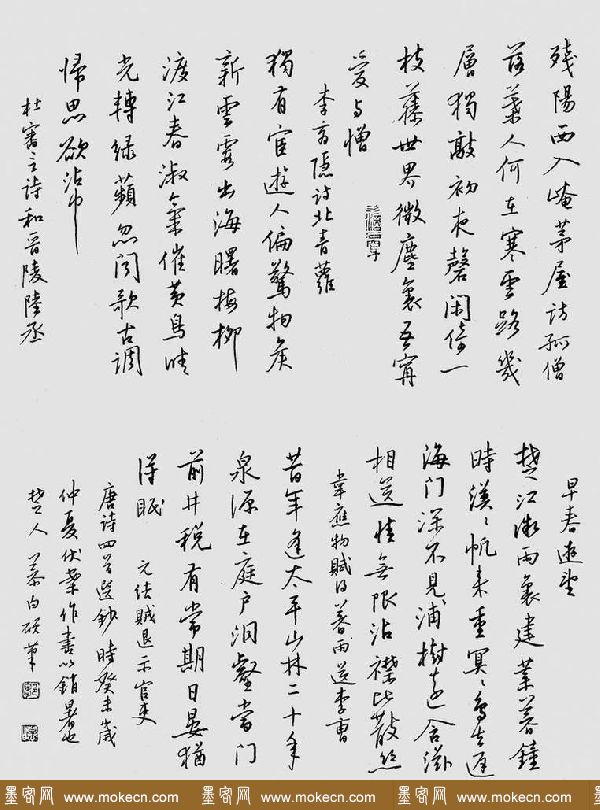 殘陽西入崦茅屋訪孤僧
落葉人何在寒雲路幾
層獨敲初夜磬閑倚一
枝藤世界微塵裏吾寧
愛与憎
李商隱詩北青蘿
獨有宦遊人偏驚物候
新雲霞出海曙梅柳
渡江春淑氣催黃鳥晴
光轉綠蘋忽聞歌古調
歸思欲沾巾
杜審言詩和晉陵陸丞
早春遊望
楚江微雨裏建業暮鐘
時漠〻帆來重冥〻鳥去遲
海門深不見浦樹遠含滋
相送情無限沾襟比散絲
韋應物賦得暮雨送李曹
昔年逢太平山林二十年
泉源在庭戶洞壑當門
前井稅有常期日晏猶
得眠 元結賊退示官吏
唐詩四首選鈔時癸未歲
仲夏伏案作書以銷暑也
楚人
墨客网 www.mokecn.com 墨客网 www.mokecn.com 墨客网 www.mokecn.com